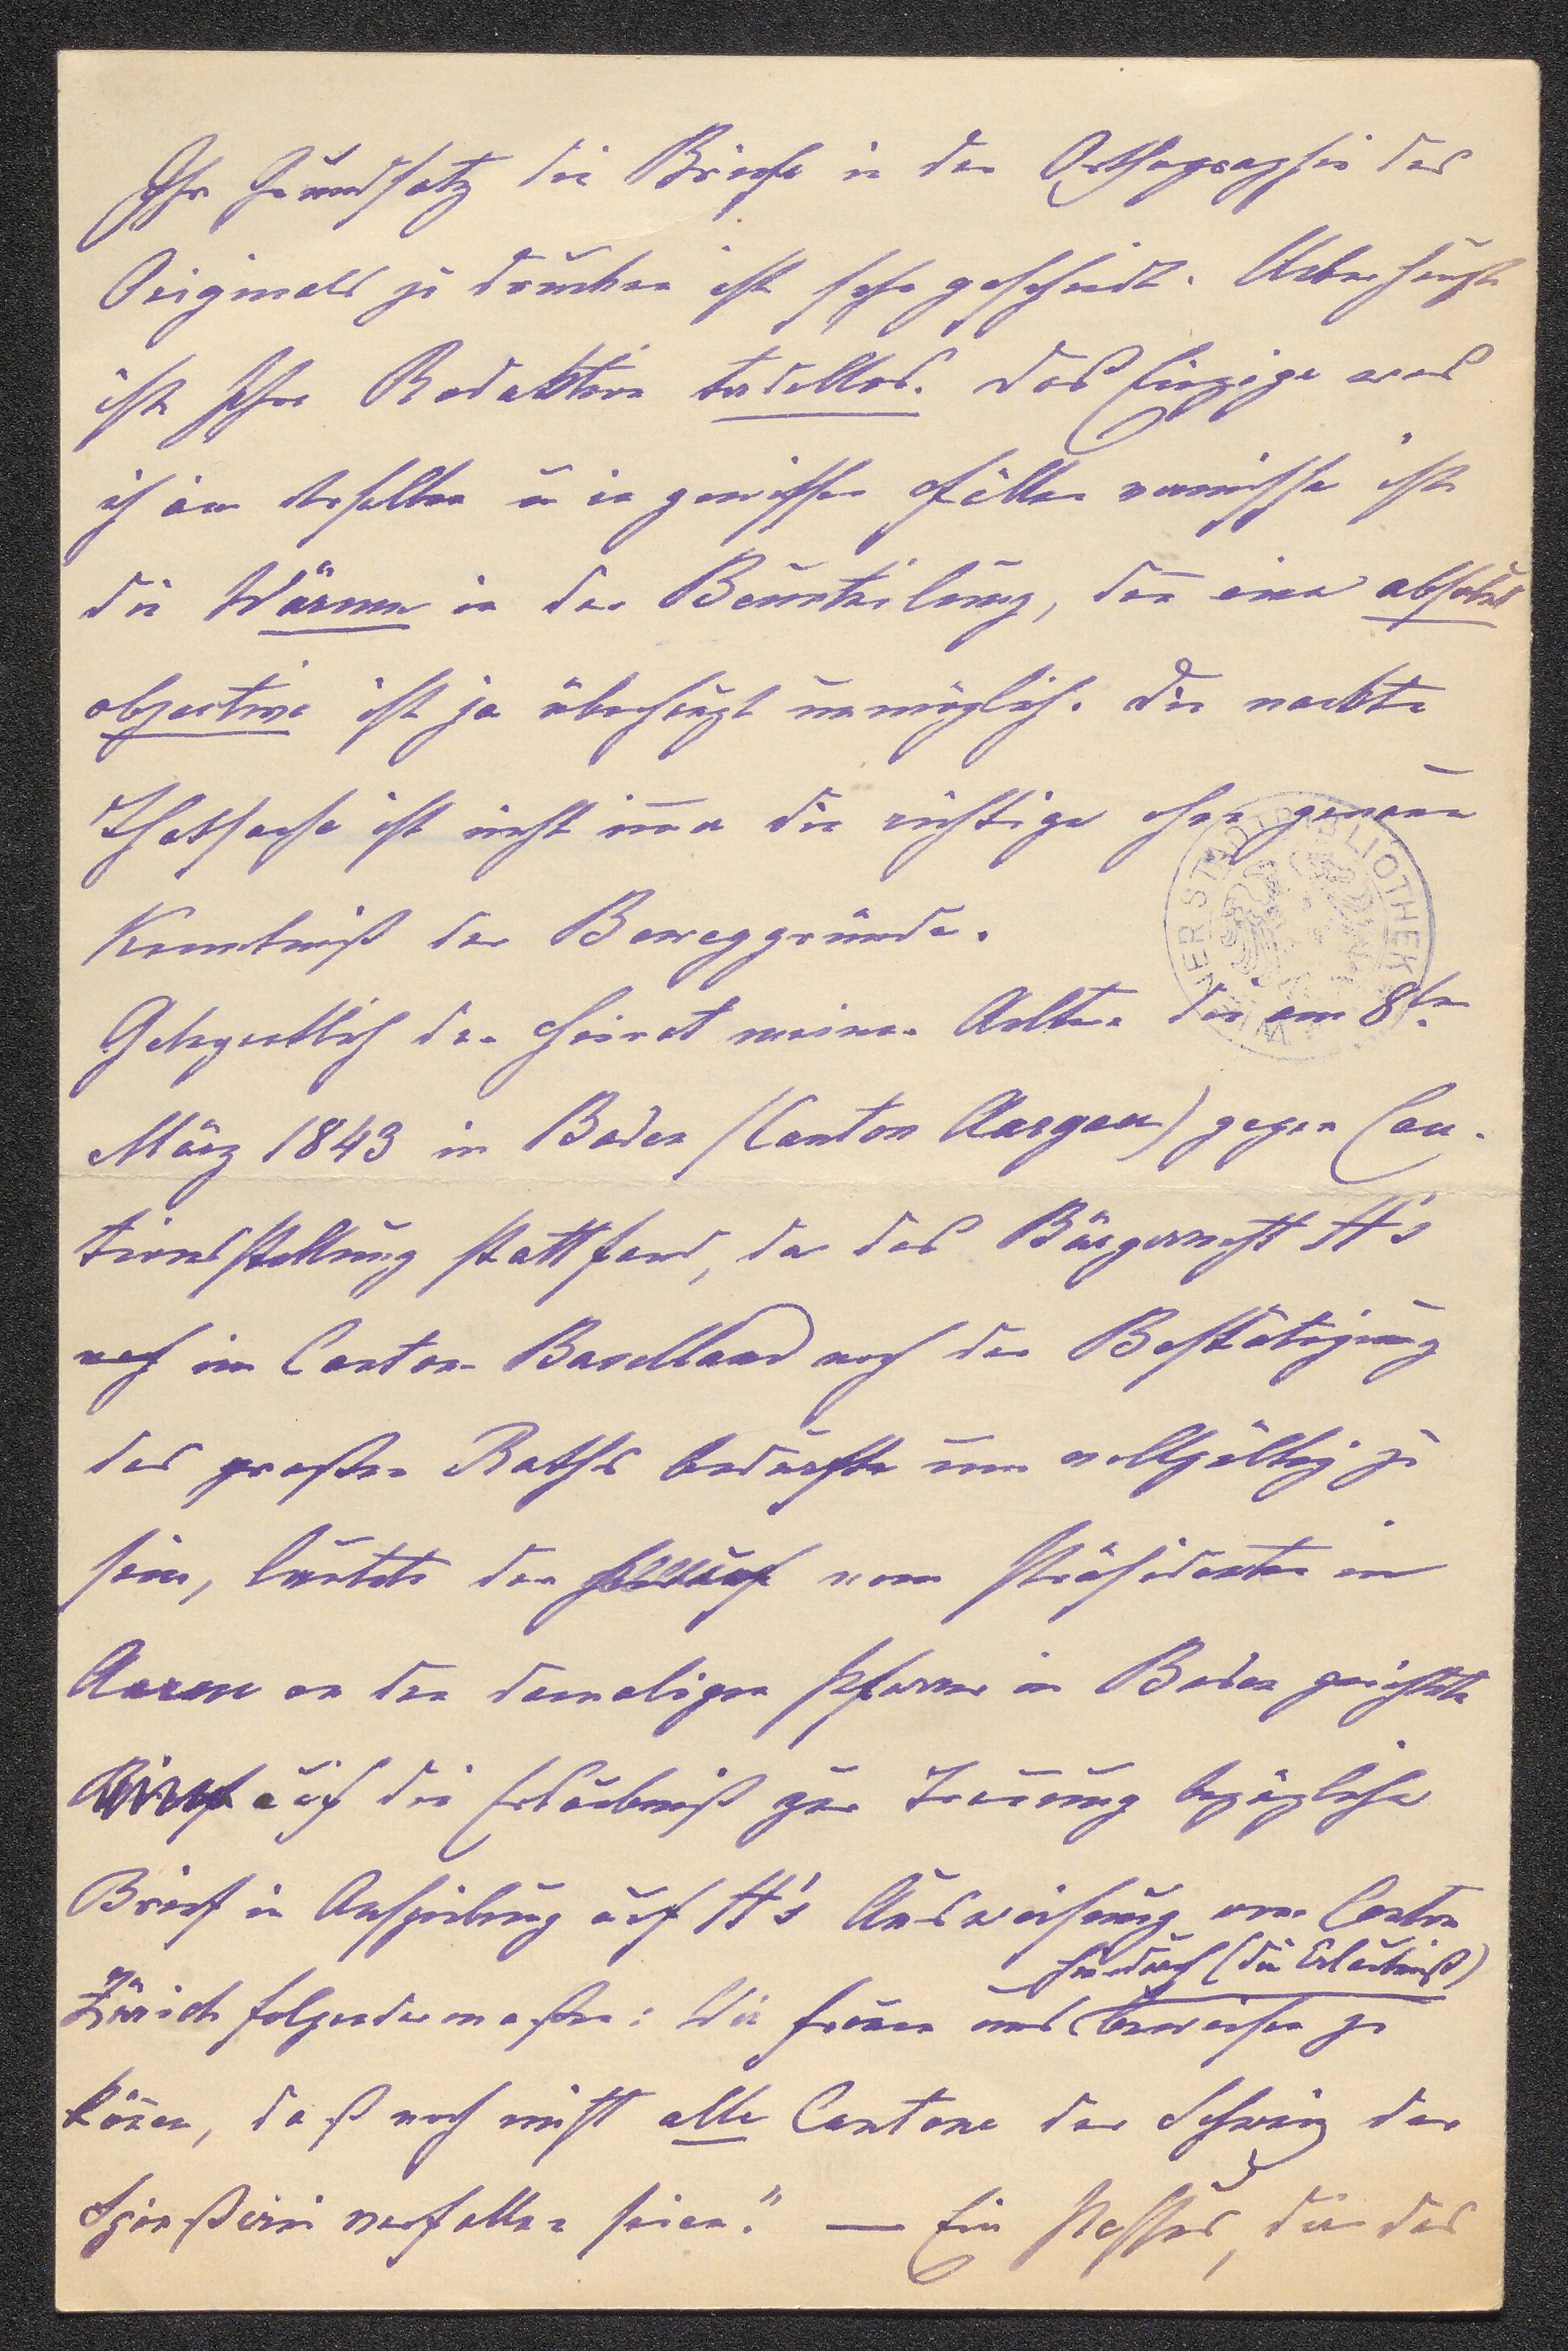 Ihr Grundsatz die Briefe in der Orthographie des
Originals zu drucken ist sehr gescheidt. Ueberhaupt
ist Ihre Redaktion tadellos. Das Einzige was
ich an derselben u in gewissen Fällen vermisse ist
die Wärme in der Beurteilung, den eine absolut
objective ist ja überhaupt unmöglich. Die nackte
Thatsache ist nicht im̅er die richtige ohne genaue
Kenntniß der Beweggründe.
Gelegentlich der Heirat meiner Aeltern die am 8ten
März 1843 in Baden (Canton Aargau) gegen Cau-
tionsstellung stattfand, da das Bürgerrecht H's
noch im Canton Baselland noch der Bestätigung
des großen Raths bedurfte um vollgültig zu
sein, lautete der vom Präsidenten in
Aarau an den damaligen Pfarrer in Baden gerichtete
auf die Erlaubniß zur Trauung bezügliche
Brief in Anspielung auf H's Ausweisung vom Canton
hierdurch (die Erlaubniß)
Zürich folgendermaßen: Wir freuen uns beweisen zu
kön̅en, daß noch nicht alle Cantone der Schweiz der
Spießerei verfallen seien." — Ein Passus, der das
WIENER STADTBIBLIOTHEK